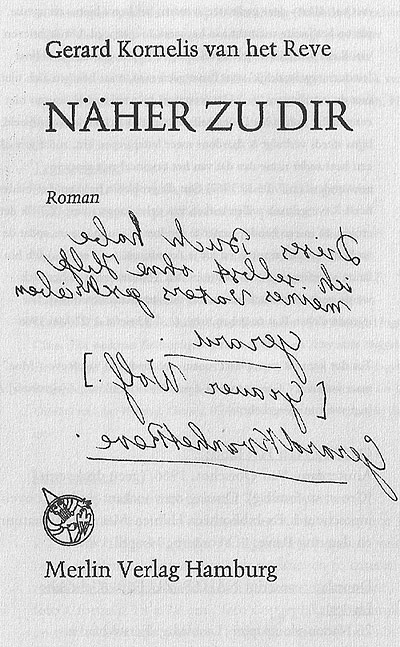 Gerard Kornelis van het Reve
NÄHER ZU DIR
Roman
Dieses Buch habe
ich selbst ohne Hilfe
meines Vaters geschrieben
Gerard
[Grauer Wolf.]
Gerard Kvanhet Reve.
Merlin Verlag Hamburg